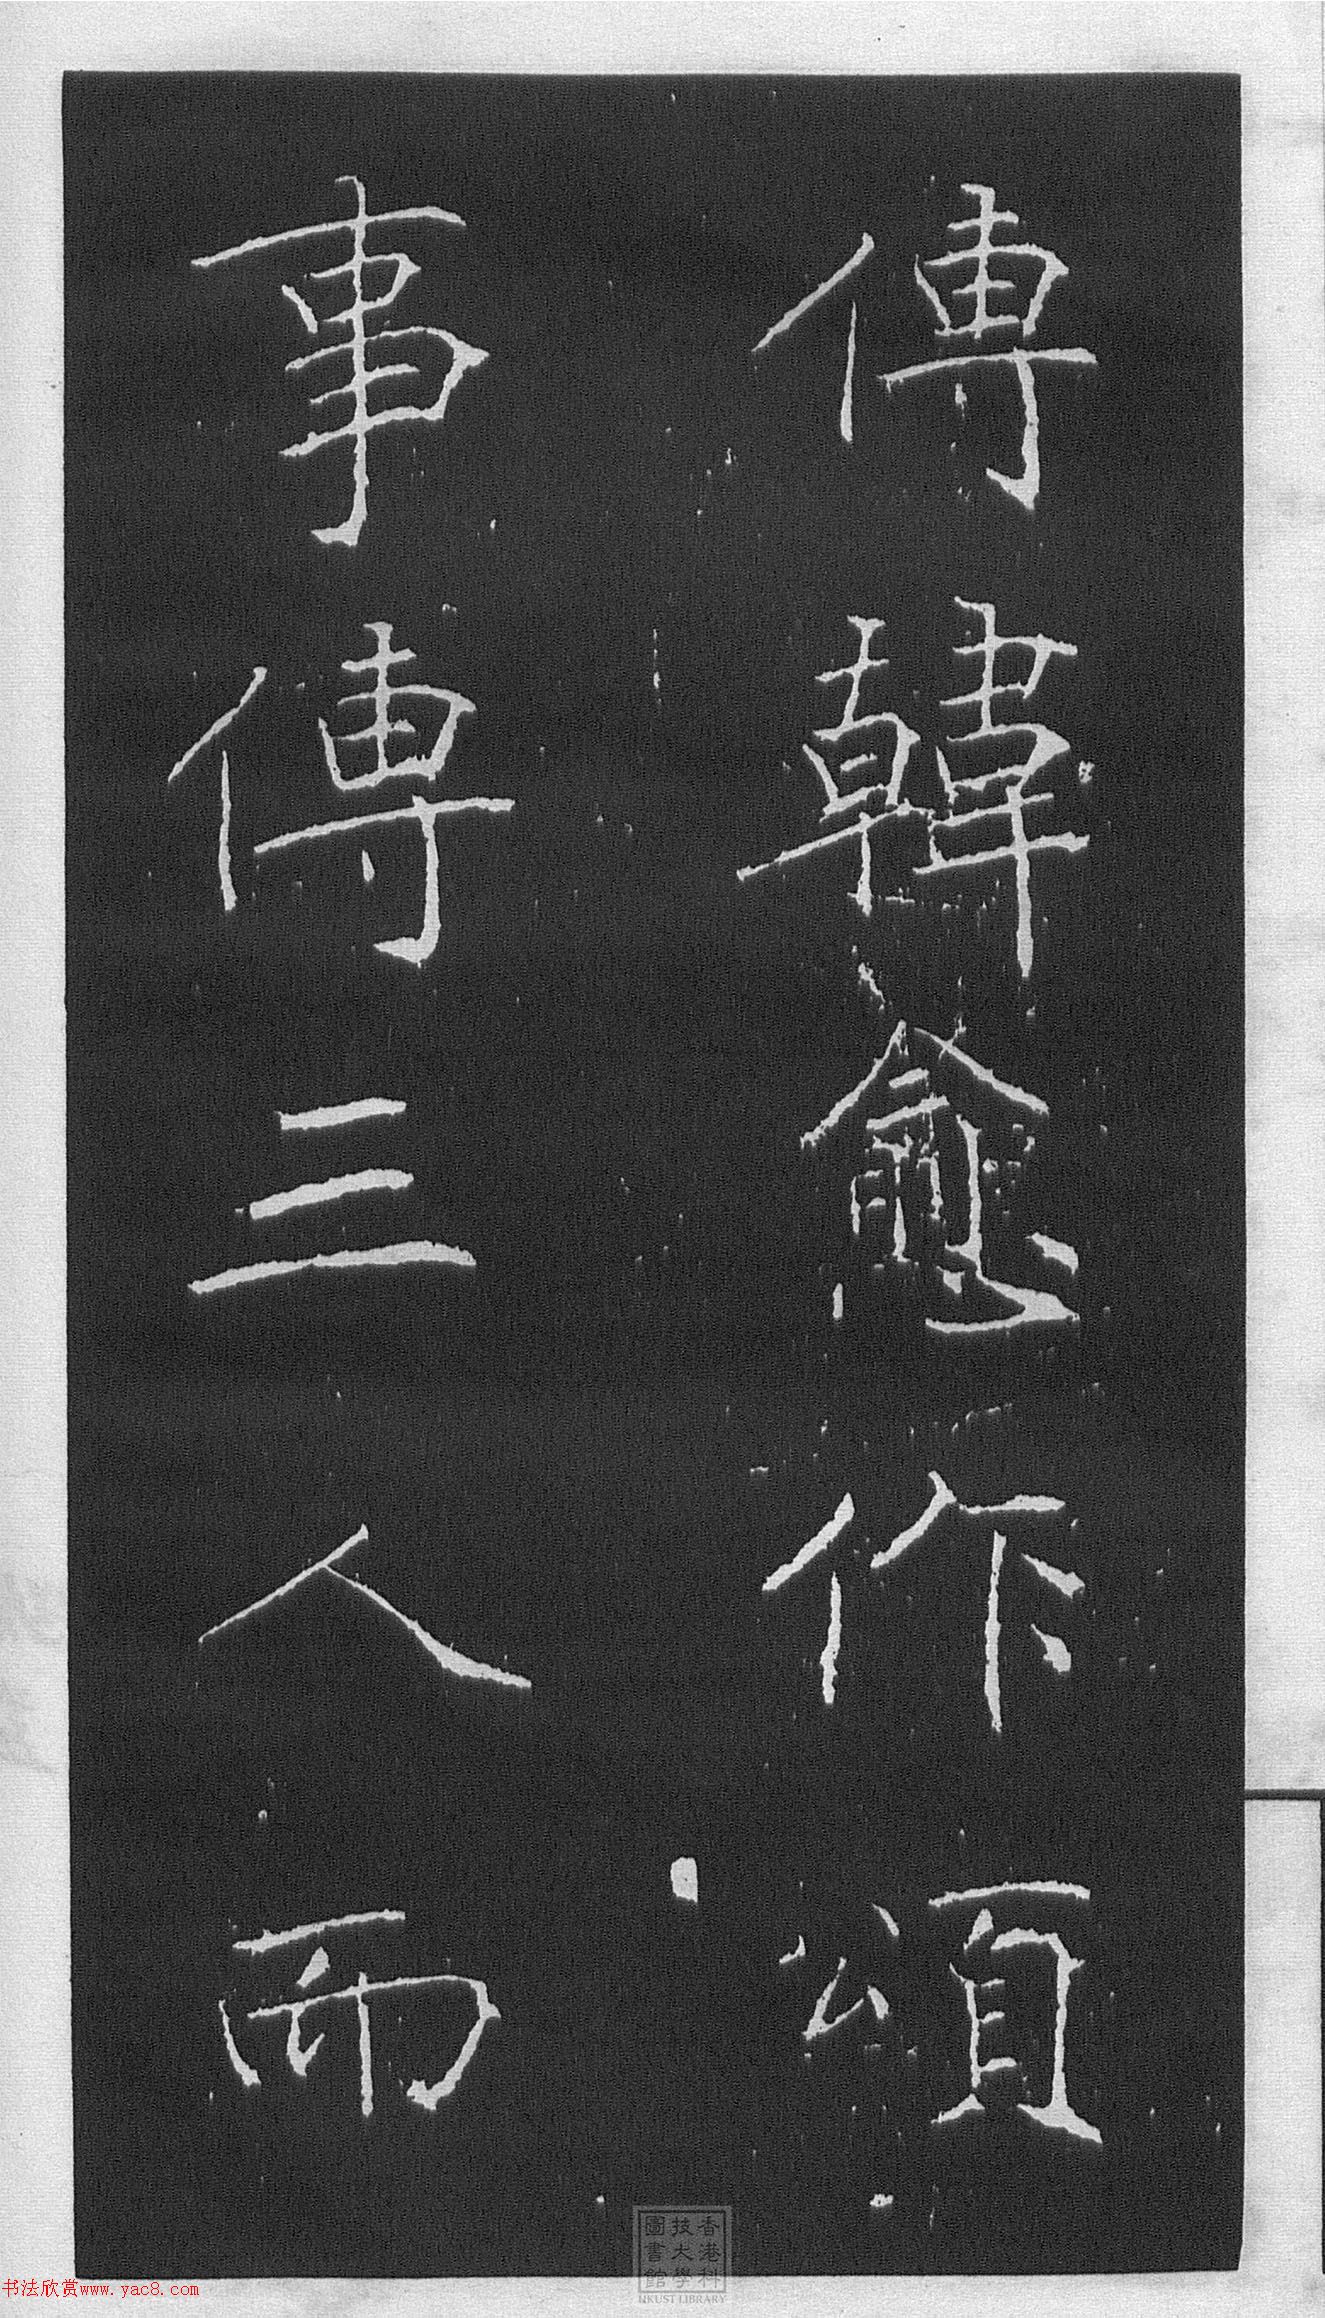 傳韓愈作頌
事傳三人而
香港科技大學圖書館
HKUST LIBRARY
书法欣赏www.yac8.com